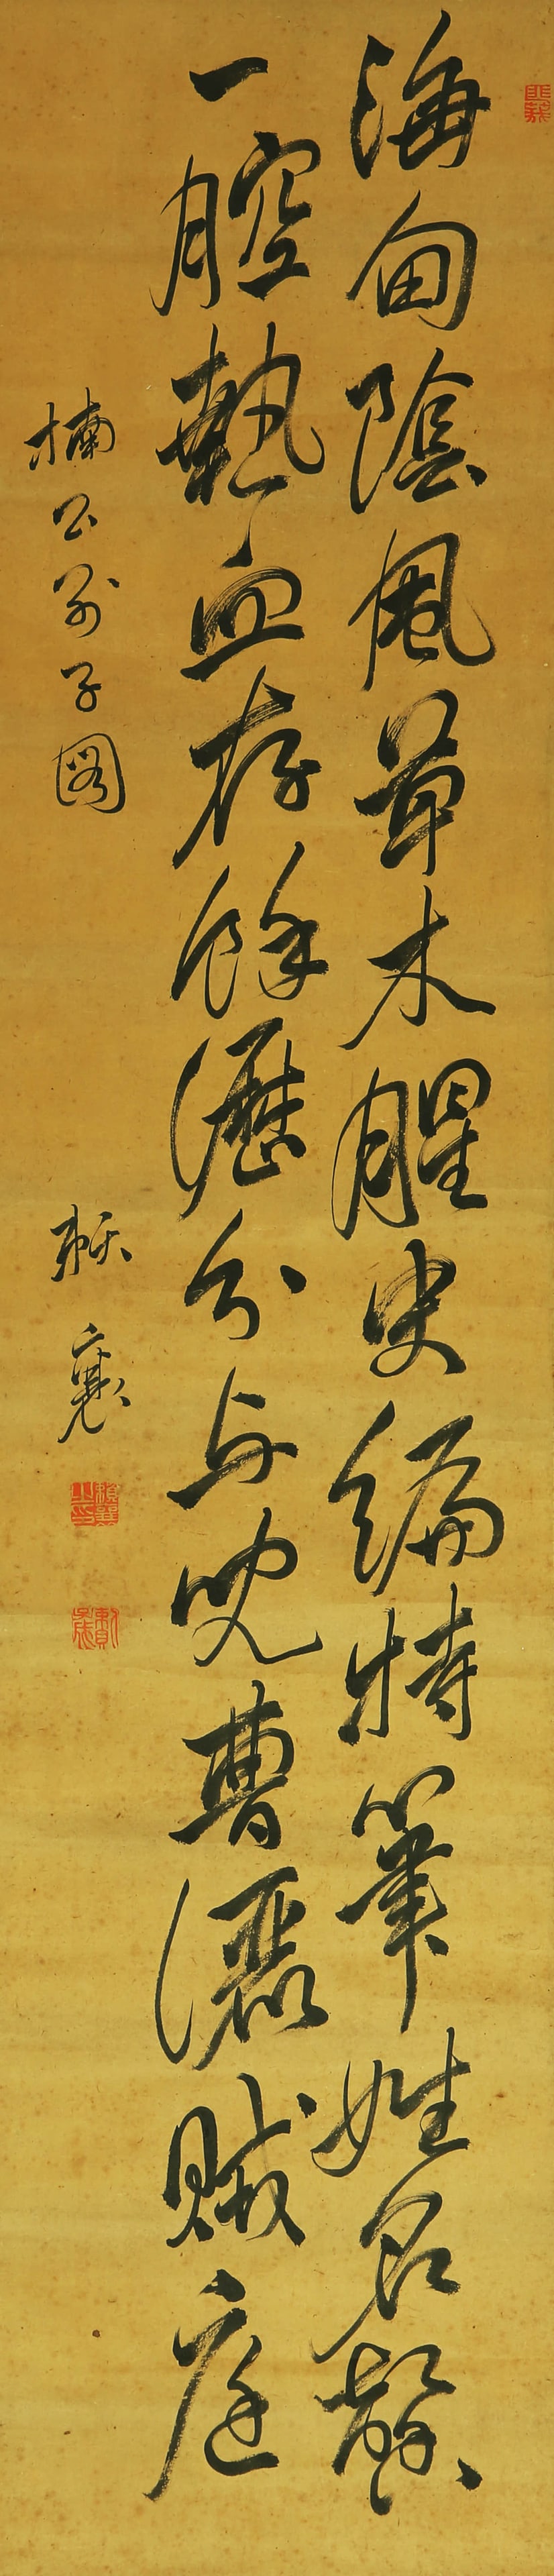 海甸陰風草木腥史編特筆姓名馨
一腔熱血存餘瀝分与兒曹灑賊庭
楠公別子圖
頼襄